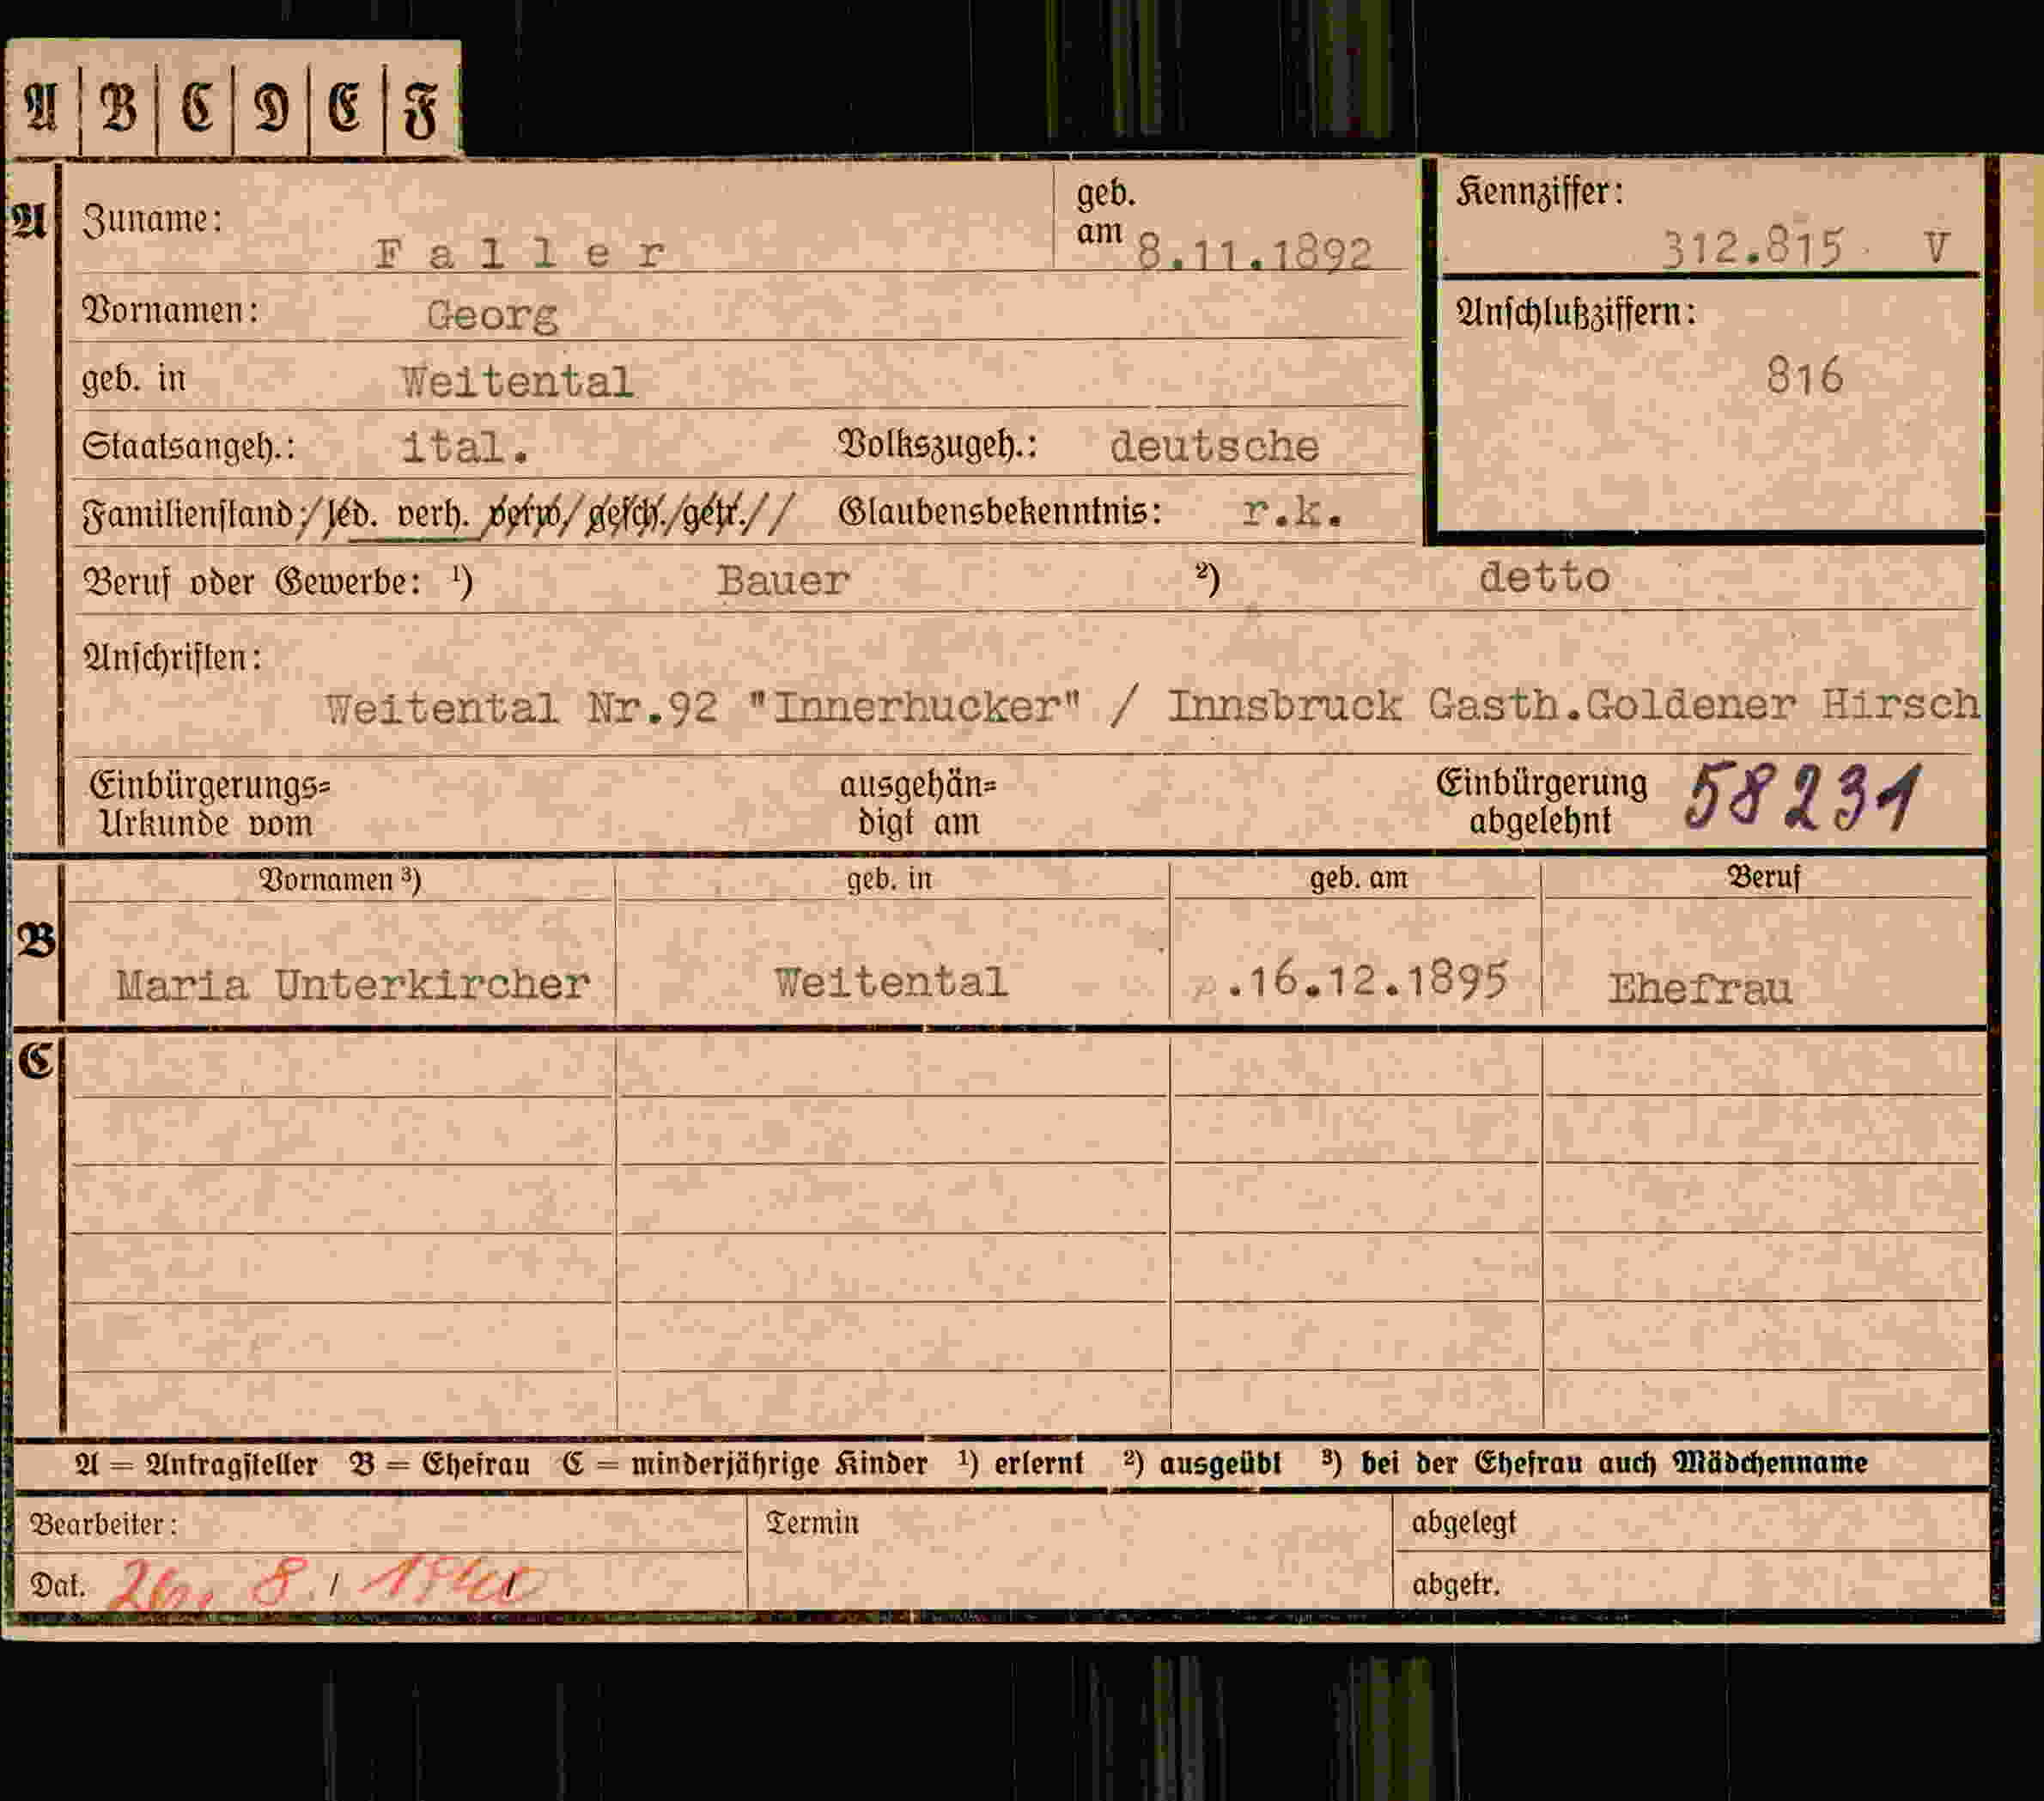 A B C D E F
A Zuname: Faller geb. am 8.11.1892
Kennziffer: 312.815 V
Vornamen: Georg
Anschlußziffern: 816
geb. in Weitental
Staatsangeh.: ital. Volkszugeh.: deutsche
Familienstand: led. verh. verw. gesch. getr. Glaubensbekenntnis: r.k.
Beruf oder Gewerbe: ¹) Bauer ²) detto
Anschriften:
Weitental Nr.92 "Innerhucker" / Innsbruck Gasth.Goldener Hirsch
Einbürgerungs= ausgehän= Einbürgerung 58231
Urkunde vom digt am abgelehnt
Vornamen ³) geb. in geb. am Beruf
B Maria Unterkircher Weitental .16.12.1895 Ehefrau
C
A = Antragsteller B = Ehefrau C = minderjährige Kinder ¹) erlernt ²) ausgeübt ³) bei der Ehefrau auch Mädchenname
Bearbeiter: Termin abgelegt
Dat. 8. 1940 abgetr.